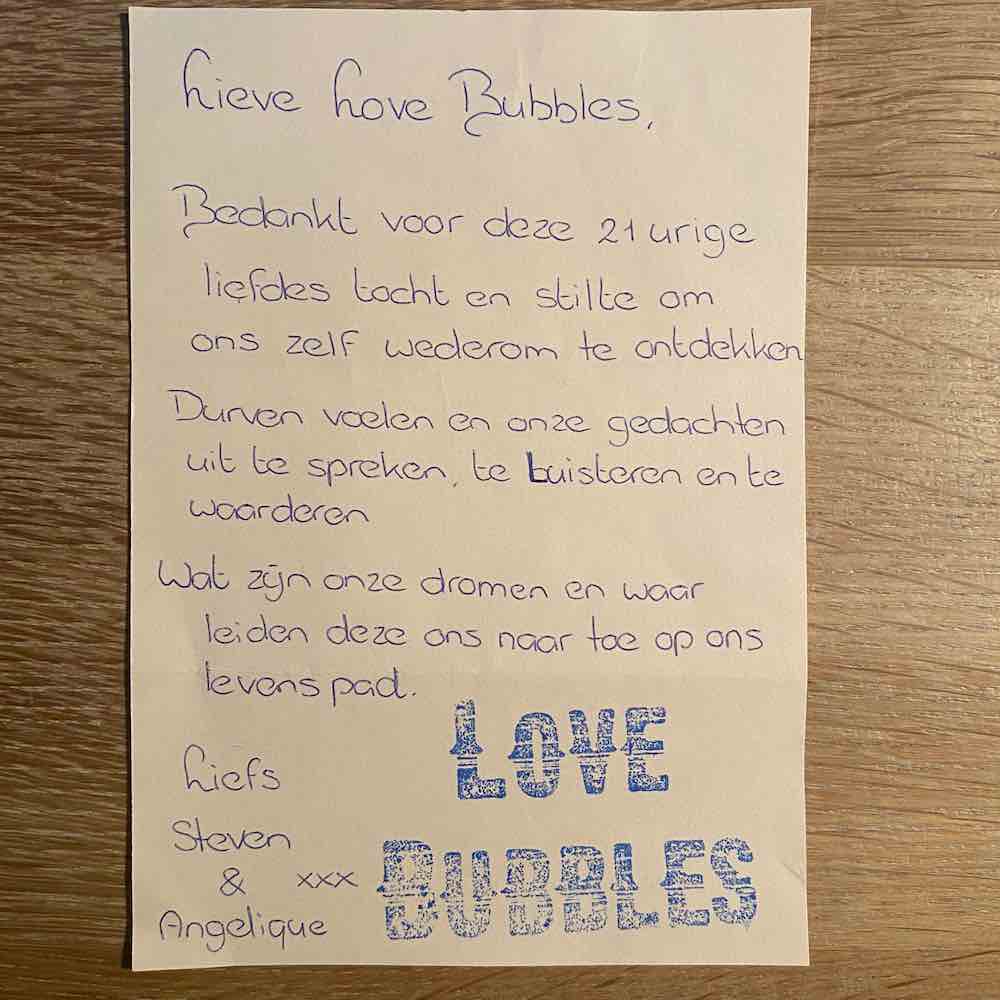 Lieve Love Bubbles,
Bedankt voor deze 21 urige
liefdes tocht en stilte om
ons zelf wederom te ontdekken
Durven voelen en onze gedachten
uit te spreken, te Luisteren en te
waarderen
Wat zijn onze dromen en waar
leiden deze ons naar toe op ons
levens pad.
Liefs
Steven
& xxx
Angelique
LOVE
BUBBLES